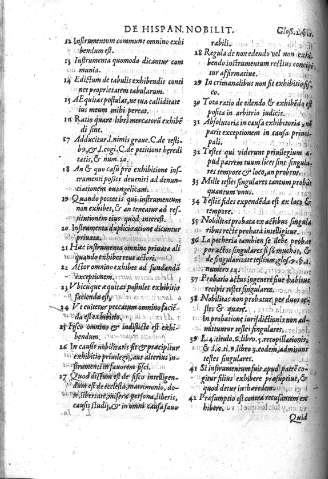 DE HISPAN. NOBILIT.
12 Instrumentum commune omnino exhi
bendum est.
13 Instrumenta quomodo dicantur com
munia.
14 Edictum de tabulis exhibendis conti
net proprietarem tabularum.
15 Aequitas postulat, ne tua calliditate
ius meum mihi pereat.
16 Ratio quare libri mercatorum exhibē
di sint.
17 Adducitur l. nimis graue. C. de testi-
bo, & l. cogi. C. de petitione heredi
tatis, & num. 20.
18 An & quo casu pro exhibitione ins-
trumenti possit deueniri ad denun-
ciationem euangelicam.
19 Quando possessis qui instrumentum
non exhibet, & an teneatur ad res-
titutionem eius quod interest.
20 Instrumenta duplicatione dicuntur
priuata.
21 Haec instrumenta omnino priuata ali
quando exhibet reus actori.
22 Actor omnino exhibet ad fundandā
exceptionem.
23 Vbicunque aequitas postulet exhibitio
facienda est,
24 Ve euitetur peccatum omnino faciē-
da est exhibitio.
25 Fisco omnino & indistincte est exhi-
bendum.
26 In causis nobilitatis fit & praecipitur
exhibitio priuilegij, aut alterius in-
strumenti in fauorem fisci.
27 Quod dictum est de fisco intelligen-
dum est de ecclesia, matrimonio, do-
te, libertate, misera persona, liberis,
causis studij, & in omni causa fauo
rabili.
28 Regula de non edendo vel non exhi-
bendo instrumentum rectius concipi-
tur affirmatiue.
29 In criminalibus non fit exhibitio fis-
co,
30 Tota ratio de edendo & exhibēdo est
posita in arbitrio iudicis.
31 Absolutoria in causa exhibitoria nō
parit exceptionem in causa princi-
pali.
32 Testes qui viderunt priuilegium a-
pud patrem tuum licet sint singula-
res tempore & loco, an probent.
33 Mille testes singulares tantum probāt
quantum vnus.
34 Testis fides expendēda est ex loco &
tempore.
35 Nobilitas probata ex actibus singula
ribus recte probaria intelligitur.
36 La pecheria tambien se deue probar
por actos singulares si son muchos, &
de singularitate testium, glos. 18. a
numero 12.
37 Probatio actus ingenere fiue habitus
recipit testes singulares.
38 Nobilitas non probatur, per duos ac-
tus & quare.
39 In probatione iurisdictionis non ad-
mittuntur testes singulares.
39 L. 4. titulo. 6. libro 5. recopillationis,
& l. 41. 9. libro 2. eodem, admittunt
testes singulares.
41 Si instrumentum fuit apud patrē co-
gitur filius exhibere praesumptiue, &
quod detur in heredem.
42 Praesumptio est contra recusantem ex
hibere.
Quid